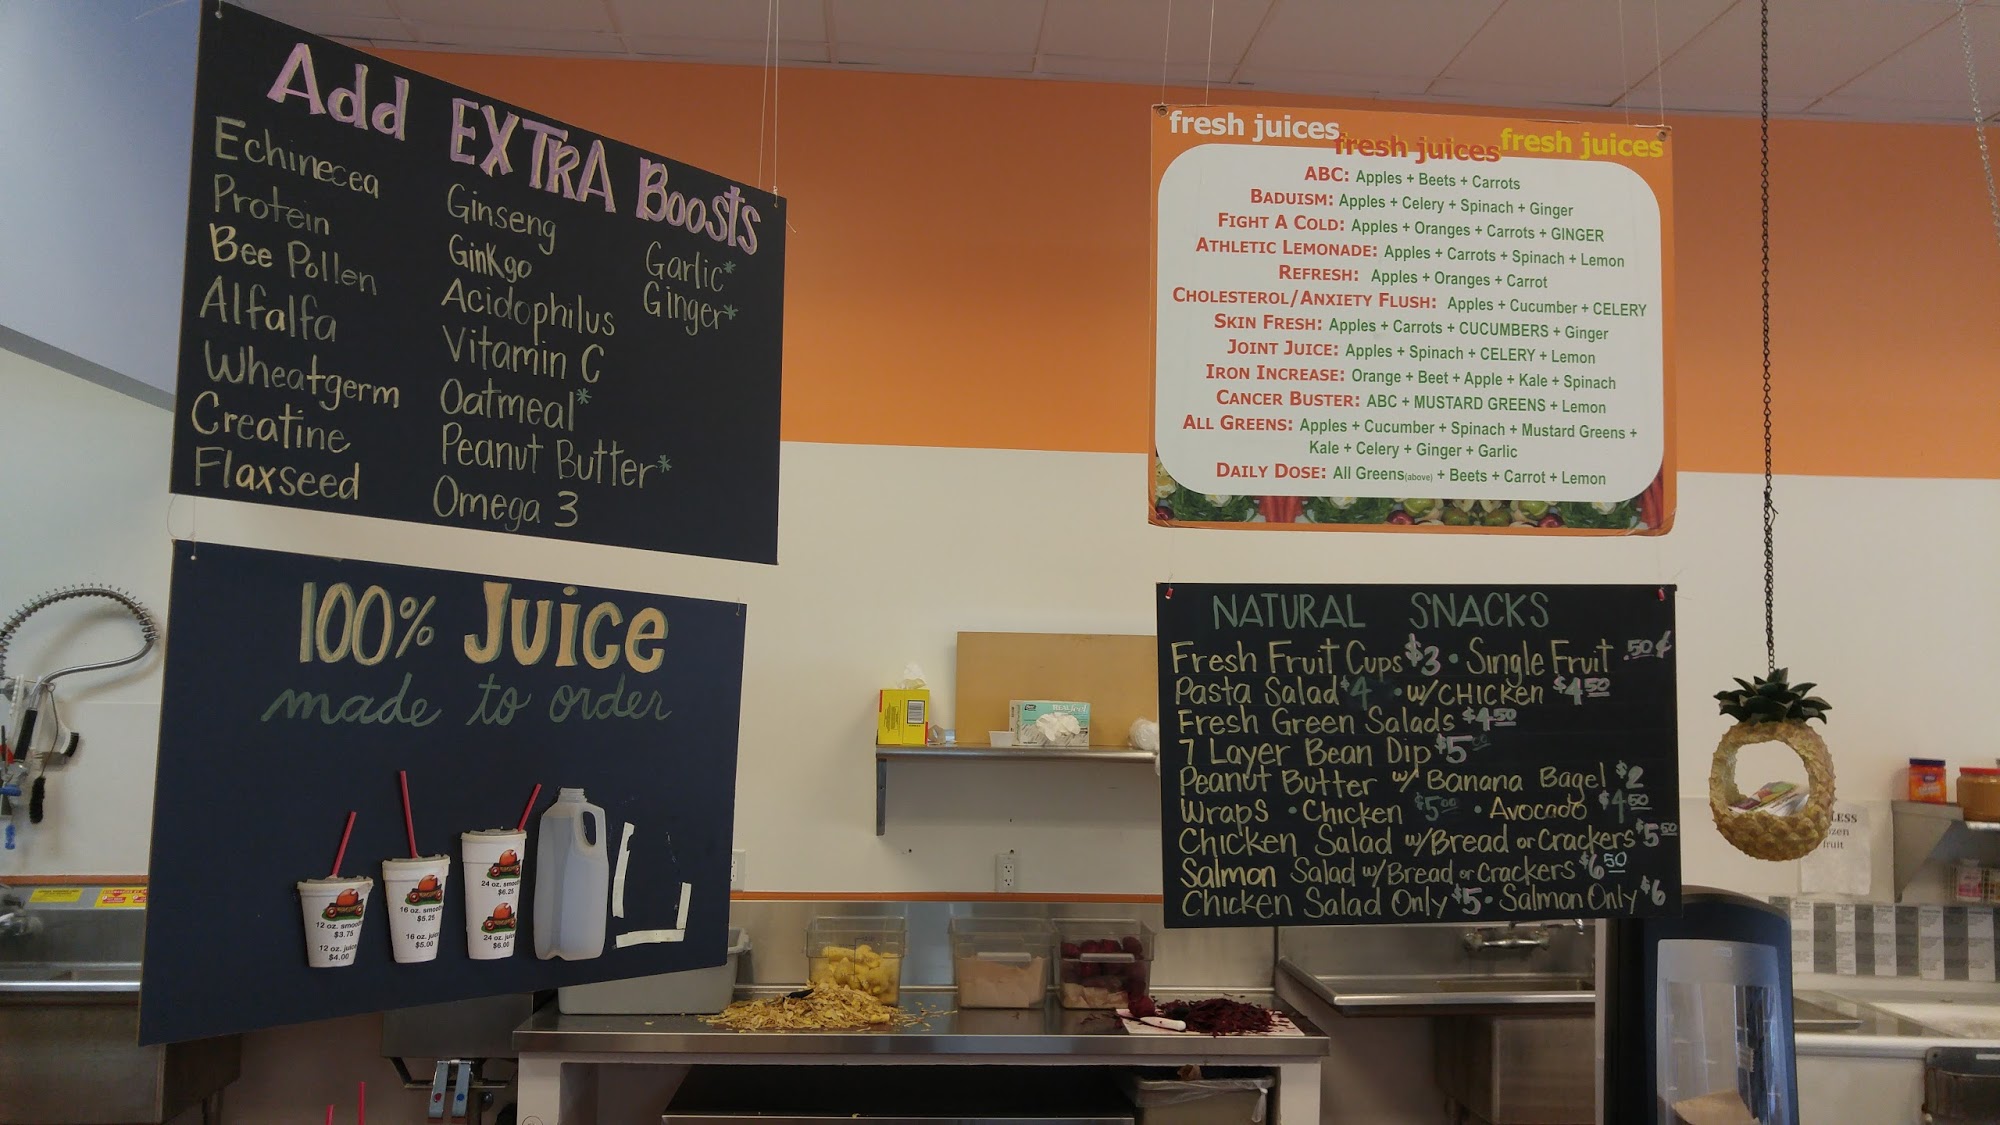 Add EXTRA Boosts
Echinecea
Protein
Bee Pollen
Alfalfa
Wheatgerm
Creatine
Flaxseed
Ginseng
GinKgo
Acidophilus
Vitamin C
Oatmeal*
Peanut Butter*
Omega 3
Garlic*
Ginger*
100% Juice
made to order
12 oz. smoo
$3.75
12 oz. juic
$4.00
16 oz. smoo
$5.25
16 oz. juic
$5.00
24 oz. smoo
$6.25
24 oz. juic
$6.00
fresh juices fresh juices fresh juices
ABC: Apples + Beets + Carrots
BADUISM: Apples + Celery + Spinach + Ginger
FIGHT A COLD: Apples + Oranges + Carrots + GINGER
ATHLETIC LEMONADE: Apples + Carrots + Spinach + Lemon
REFRESH: Apples + Oranges + Carrot
CHOLESTEROL/ANXIETY FLUSH: Apples + Cucumber + CELERY
SKIN FRESH: Apples + Carrots + CUCUMBERS + Ginger
JOINT JUICE: Apples + Spinach + CELERY + Lemon
IRON INCREASE: Orange + Beet + Apple + Kale + Spinach
CANCER BUSTER: ABC + MUSTARD GREENS + Lemon
ALL GREENS: Apples + Cucumber + Spinach + Mustard Greens +
Kale + Celery + Ginger + Garlic
DAILY DOSE: All Greens(above) + Beets + Carrot + Lemon
NATURAL SNACKS
Fresh Fruit Cups $3 • Single Fruit .50¢
Pasta Salad $4 • w/CHICKEN $4.50
Fresh Green Salads $4.50
7 Layer Bean Dip $5.00
Peanut Butter w/ Banana Bagel $2
Wraps • Chicken $5.00 • Avocado $4.50
Chicken Salad w/Bread or Crackers $5.50
Salmon Salad w/Bread or Crackers $6.50
Chicken Salad Only $5 • Salmon Only $6